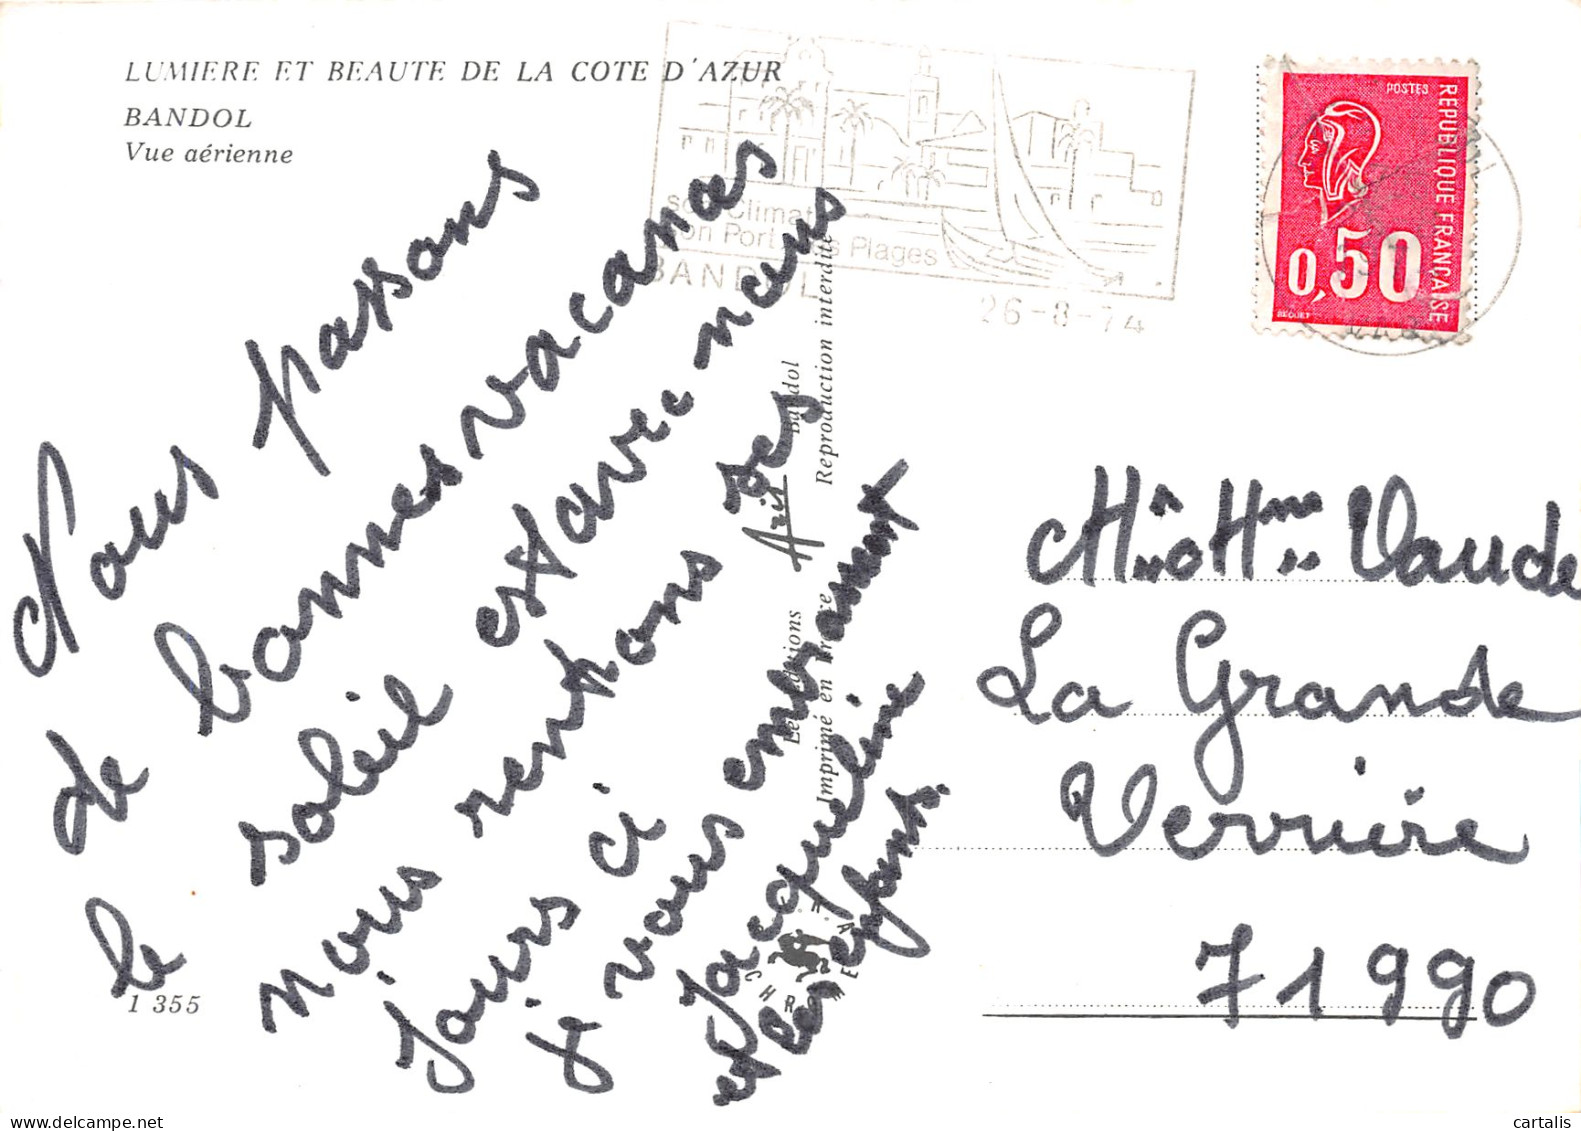 LUMIERE ET BEAUTE DE LA COTE D'AZUR
BANDOL
Vue aérienne
Nous passons
de bonnes vacances
le soleil est avec nous
nous rentrons ses
jours ci
je vous embrassent
Jacqueline
et les enfants.
1 355
Bandol
Aris
Reproduction interdite
Imprimé en
son Climat
son Port Plages
BANDOL
26-8-74
POSTES
REPUBLIQUE FRANÇAISE
0,50
BEQUET
Vaude
La Grande
Verrière
71990
cartalis
www.delcampe.net